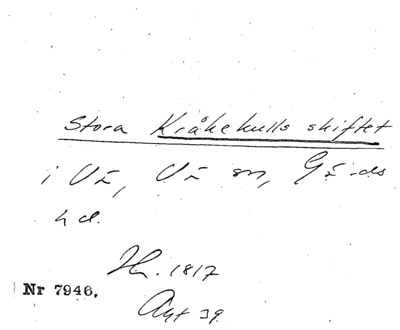 Stora Kråkekulls skiftet
i Vä, Vä sn, Gärds
hd.
Hr. 1817
Nr 7946.
Akt 39